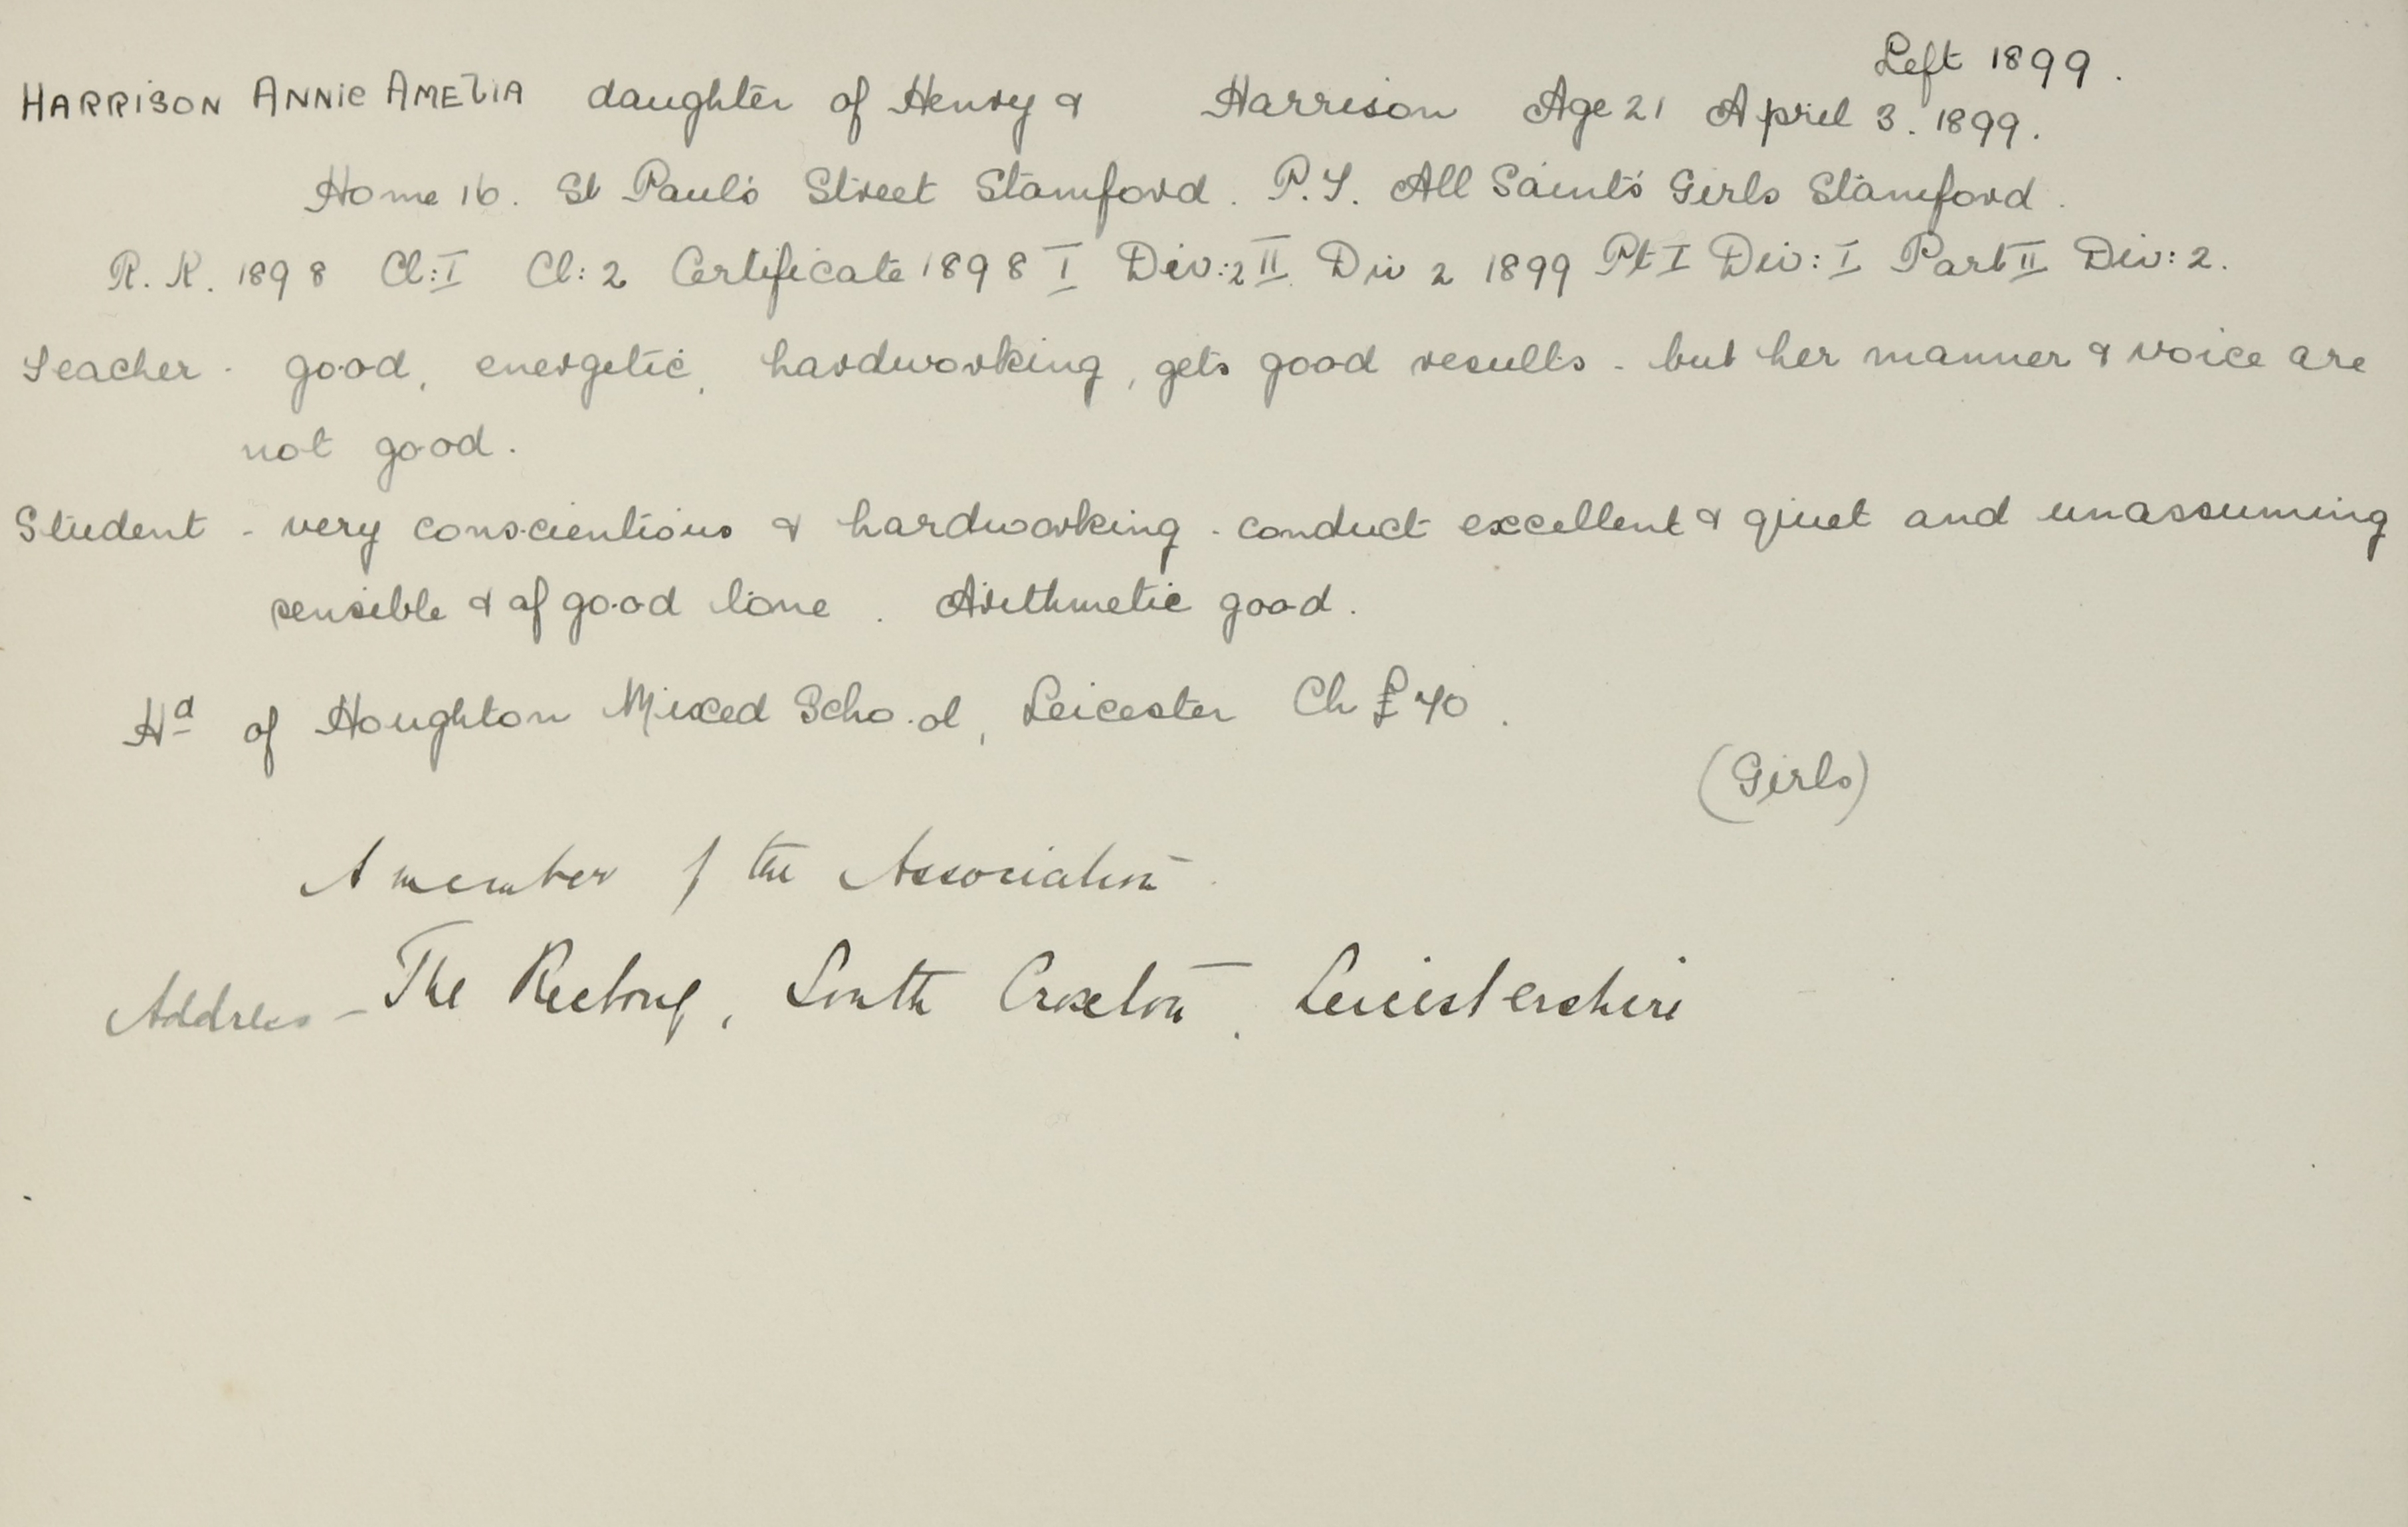 Left 1899.
HARRISON ANNIE AMELIA daughter of Henry & Harrison Age 21 April 3. 1899.
Home 16. St Paul's Street Stamford. P.T. All Saints' Girls Stamford.
R.K. 1898 Cl: I Cl: 2 Certificate 1898 I Div: 2 II Div 2 1899 Pt I Div: I Part II Div: 2.
Teacher - good, energetic, hardworking, gets good results - but her manner & voice are
not good.
Student - very conscientious & hardworking - conduct excellent & quiet and unassuming
sensible & of good tone. Arithmetic good.
Hd of Houghton Mixed School, Leicester Ch £40.
(Girls)
A member of the Association.
Address - The Rectory, South Croxton, Leicestershire